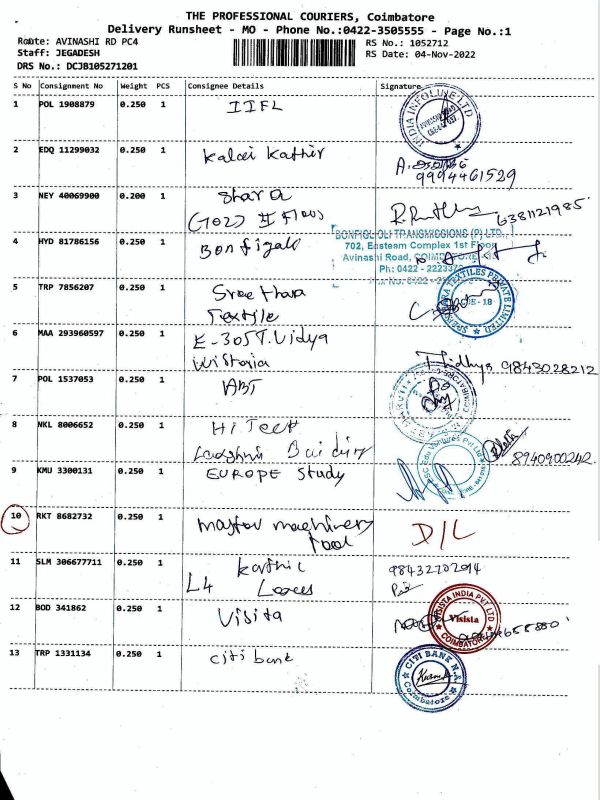 THE PROFESSIONAL COURIERS, Coimbatore
Delivery Runsheet - MO - Phone No.:0422-3505555 - Page No.:1
Route: AVINASHI RD PC4
Staff: JEGADESH
DRS No.: DCJB105271201
4
RS No.: 1052712
RS Date: 04-Nov-2022
S No Consignment No Weight PCS Consignee Details Signature
1 POL 1908879 0.250 1 IIFL
INDIA INFOLINE LTD
2 EDQ 11299032 0.250 1 Kalai Kathir
9994461529
3 NEY 40069900 0.200 1 Shara
(702) II Floor
6381121985
4 HYD 81786156 0.250 1 Bonfigale
BONFIGLIOLI TRANSMISSIONS (P) LTD.,
702, Eastern Complex 1st Floor
Avinashi Road, COIMBATORE
Ph: 0422 -
5 TRP 7856207 0.250 1 Sree thara
Textile
TEXTILES PRIVATE LIMITED
6 MAA 293960597 0.250 1 E-305 T.Vidya
Wistoria
Thidhya 9843028212
7 POL 1537053 0.250 1 ABT
8 NKL 8006652 0.250 1 Hi Teet
8940900242
9 KMU 3300131 0.250 1 EUROPE study
Edu Ventures Pvt Ltd
10 RKT 8682732 0.250 1 Master machinery
Tool
D/L
11 SLM 306677711 0.250 1 Kathic
L4
98432
12 BOD 341862 0.250 1 Visita
VISISTA INDIA PVT LTD
Visista
COIMBATORE
13 TRP 1331134 0.250 1 Citi bank
CITI BANK N.A
Coimbatore